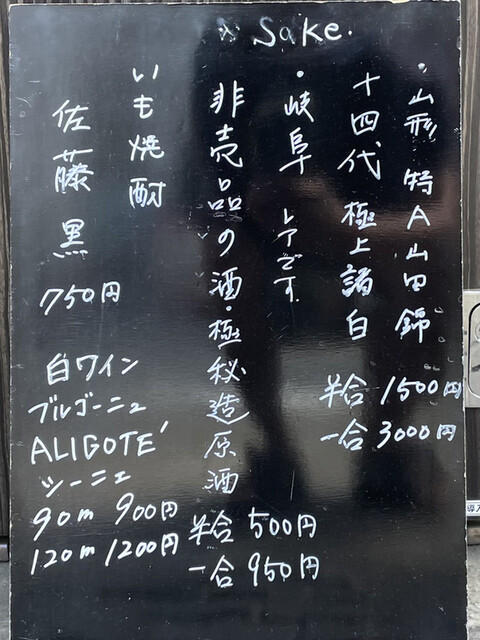 Sake.
・山形 特A山田錦
十四代 極上諸白
半合 1500円
一合 3000円
・岐阜 レアです.
非売品の酒・極秘造原酒
半合 500円
一合 950円
いも焼酎
佐藤 黒
750円
白ワイン
ブルゴーニュ
ALIGOTÉ
ツーニェ
90m 900円
120m 1200円